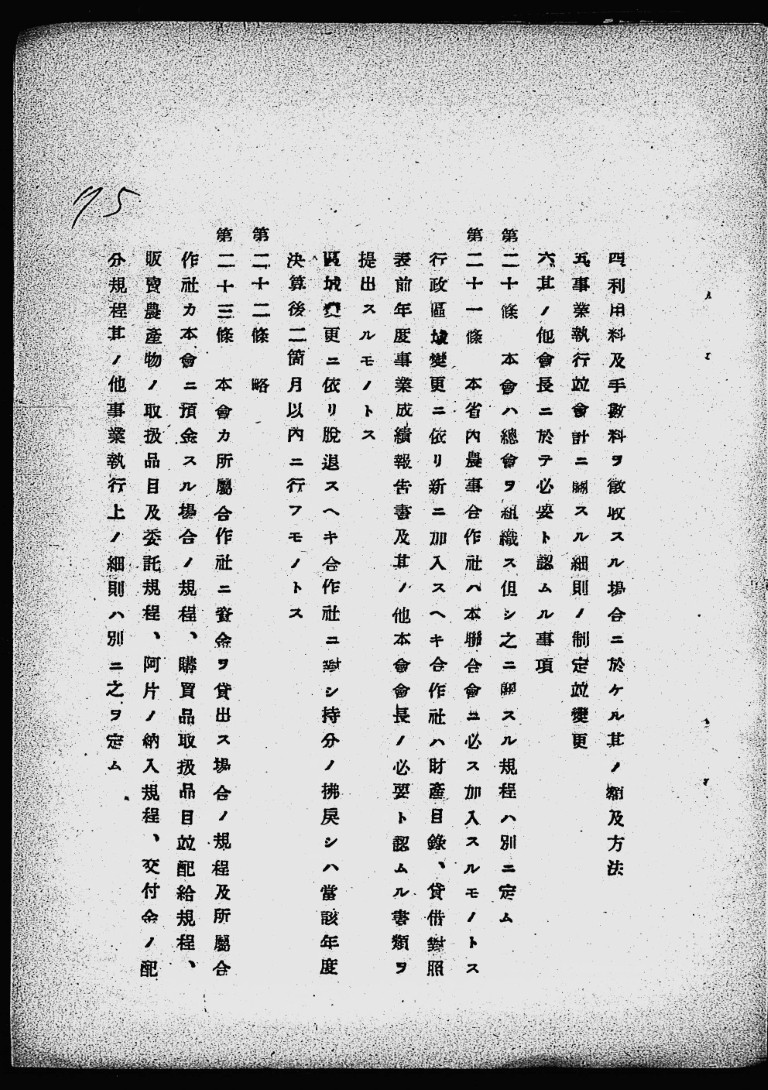 四利用料及手數料ヲ徵收スル場合ニ於ケル其ノ額及方法
五事業執行竝會計ニ關スル細則ノ制定竝變更
六其ノ他會長ニ於テ必要ト認ムル事項
第二十條　本會ハ總會ヲ組織ス但シ之ニ關スル規程ハ別ニ定ム
第二十一條　本省內農事合作社ハ本聯合會ニ必ス加入スルモノトス
行政區域變更ニ依リ新ニ加入スヘキ合作社ハ財產目錄、貸借對照
表前年度事業成績報告書及其ノ他本會會長ノ必要ト認ムル書類ヲ
提出スルモノトス
區域變更ニ依リ脫退スヘキ合作社ニ對シ持分ノ拂戾シハ當該年度
決算後二箇月以內ニ行フモノトス
第二十二條　略
第二十三條　本會カ所屬合作社ニ資金ヲ貸出ス場合ノ規程及所屬合
作社カ本會ニ預金スル場合ノ規程、購買品取扱品目竝配給規程、
販賣農產物ノ取扱品目及委託規程、阿片ノ納入規程、交付金ノ配
分規程其ノ他事業執行上ノ細則ハ別ニ之ヲ定ム
75